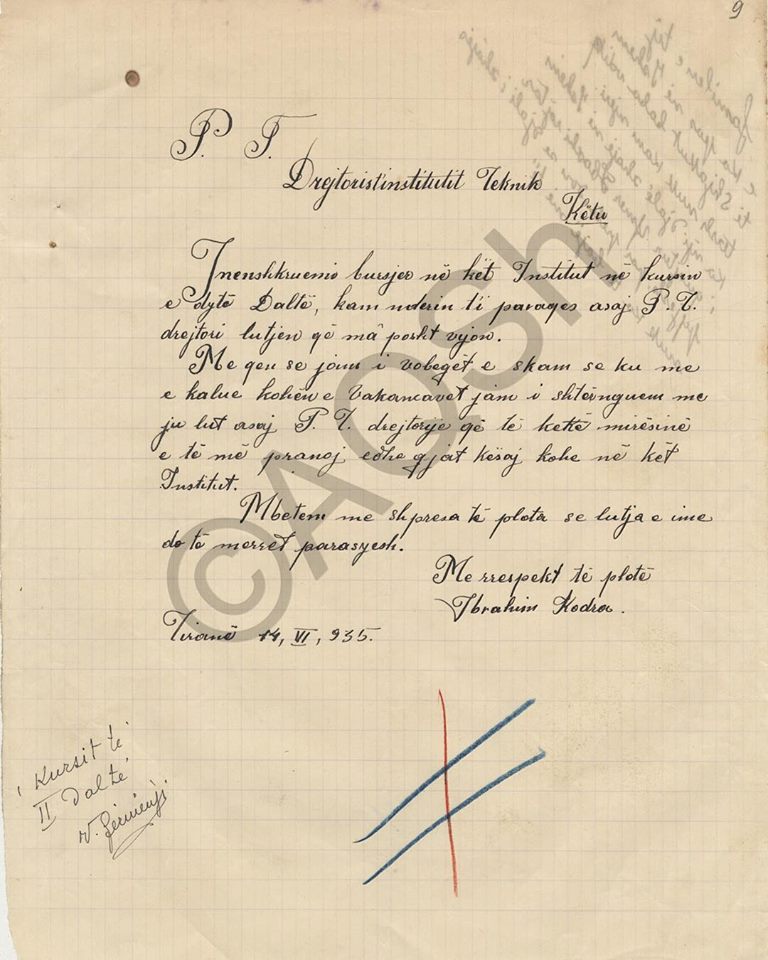 9
P. T.
Drejtorist'institutit Teknik
Këtu
I nenshkruemi bursjer në kët Institut në kursin
e dytë Daltë, kam nderin t'i paraqes asaj P. T.
drejtori lutjen që mâ poshtë vijon.
Me qen se jam i vobegët e skam se ku me
e kalue kohën e Vakancavet jam i shtërnguem me
ju lut asaj P. T. drejtorije që të ketë mirësinë
e të më pranoj edhe gjat kësaj kohe në kët
Institut.
Mbetem me shpresa të plota se lutja e ime
do të merret parasysh.
Me rrespekt të plotë
Ibrahim Kodra.
Tiranë 14, VI, 935.
i Kursit të
II Daltë
©AQSh